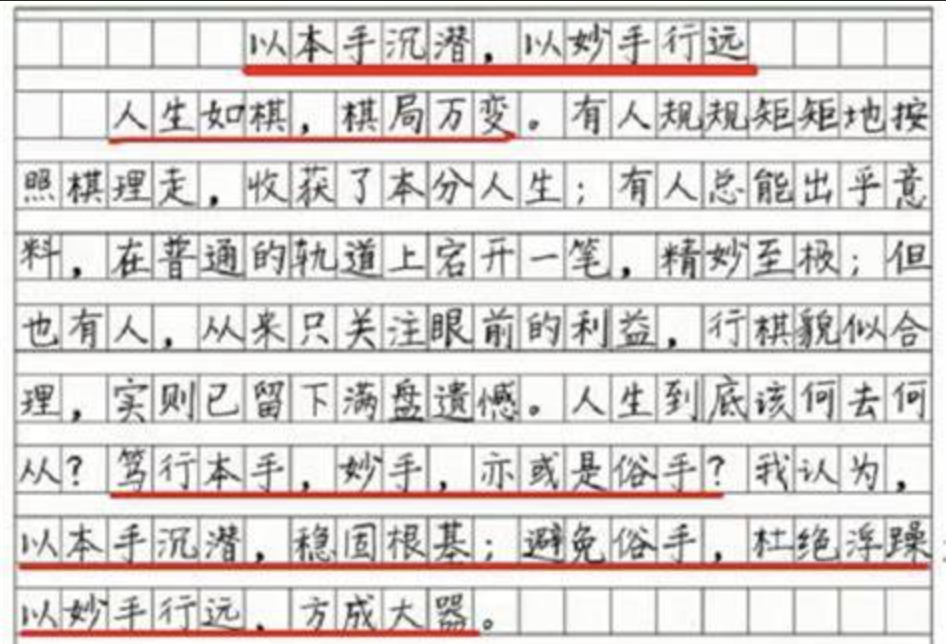 以本手沉潜，以妙手行远
人生如棋，棋局万变。有人规规矩矩地按
照棋理走，收获了本分人生；有人总能出乎意
料，在普通的轨道上宕开一笔，精妙至极；但
也有人，从来只关注眼前的利益，行棋貌似合
理，实则已留下满盘遗憾。人生到底该何去何
从？笃行本手，妙手，亦或是俗手？我认为，
以本手沉潜，稳固根基；避免俗手，杜绝浮躁；
以妙手行远，方成大器。